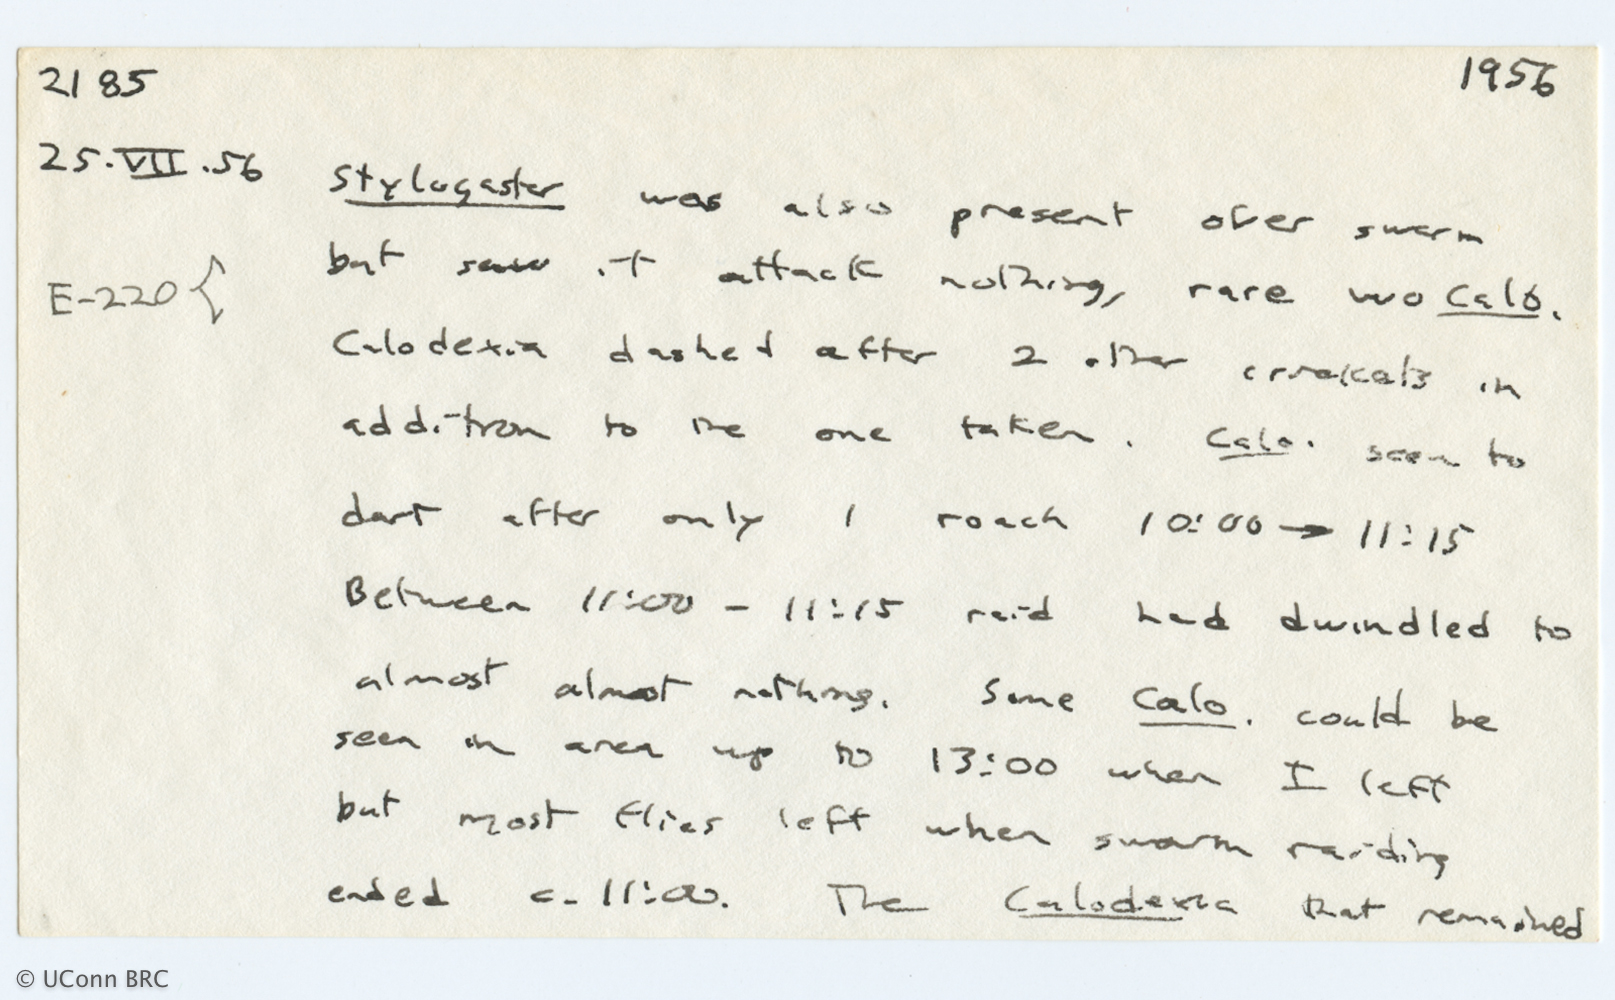 2185
1956
25.VII.56
Stylogaster was also present over swarm
but saw it attack nothing, rare
E-220 {
Calo.
Calodexia dashed after 2 other in
addition to the one taken. Calo. seen to
dart after only 1 roach 10:00 → 11:15
Between 11:00 - 11:15 raid had dwindled to
almost almost nothing. Some Calo. could be
seen in area up to 13:00 when I left
but most flies left when swarm raiding
ended c. 11:00. The Calodexia that remained
© UConn BRC